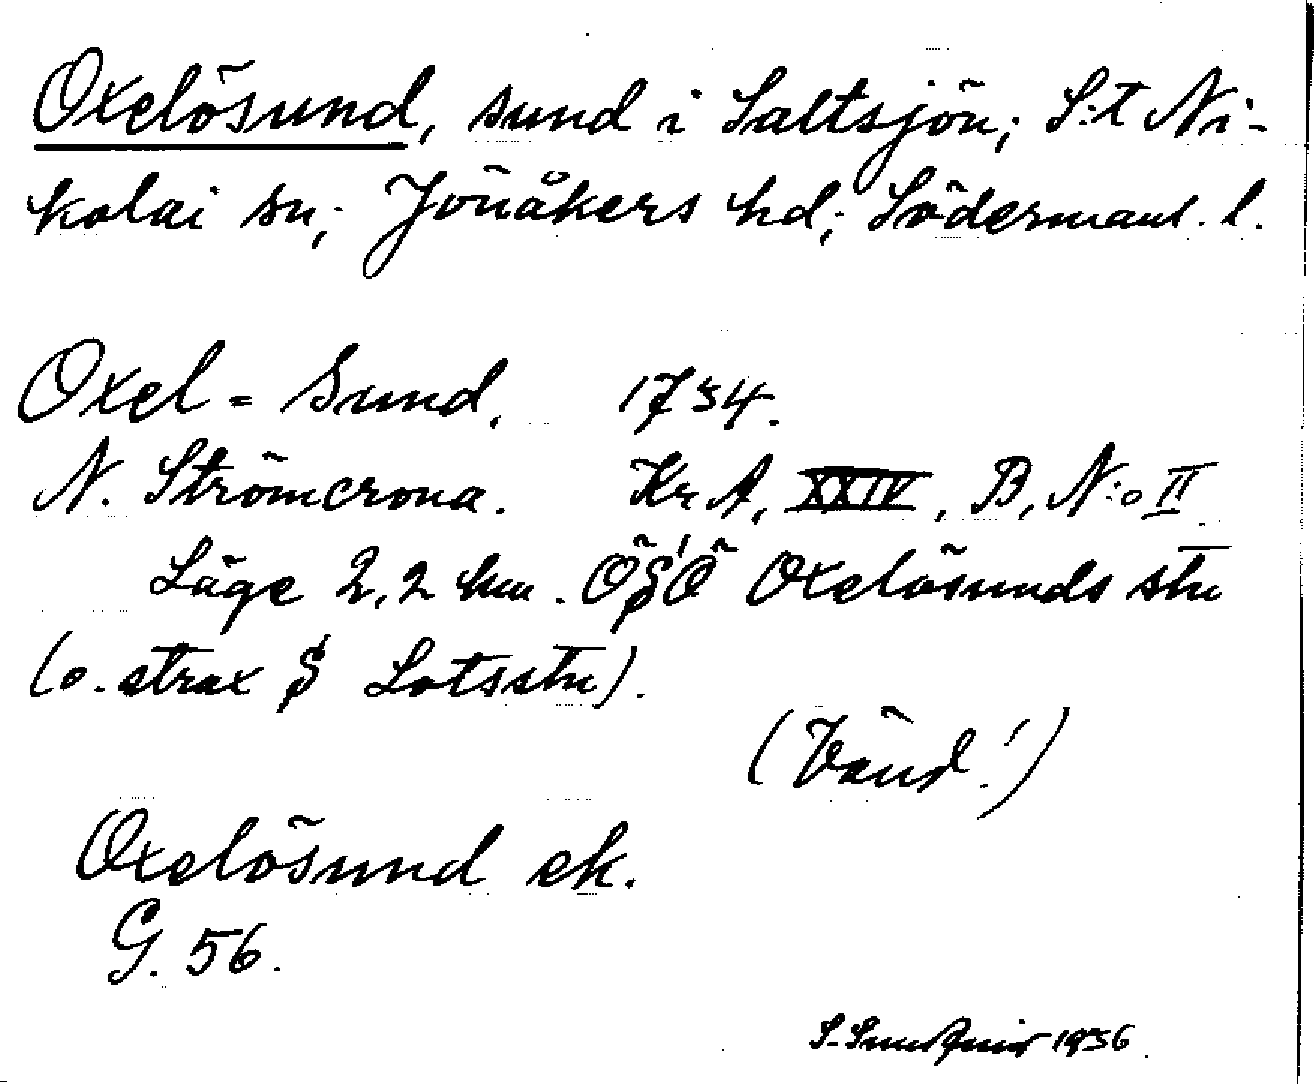 Oxelösund, sund i Saltsjön; S:t Ni-
kolai sn; Jönåkers hd; Södermanl. l.
Oxel = Sund. 1734.
N. Strömcrona. Kr A, XXIV, B, N:o II
Läge 2,2 km. ÖSÖ Oxelösunds stn
(o. strax S Lotsstn).
(Vänd!)
Oxelösund ek.
G. 56.
S. 1936.